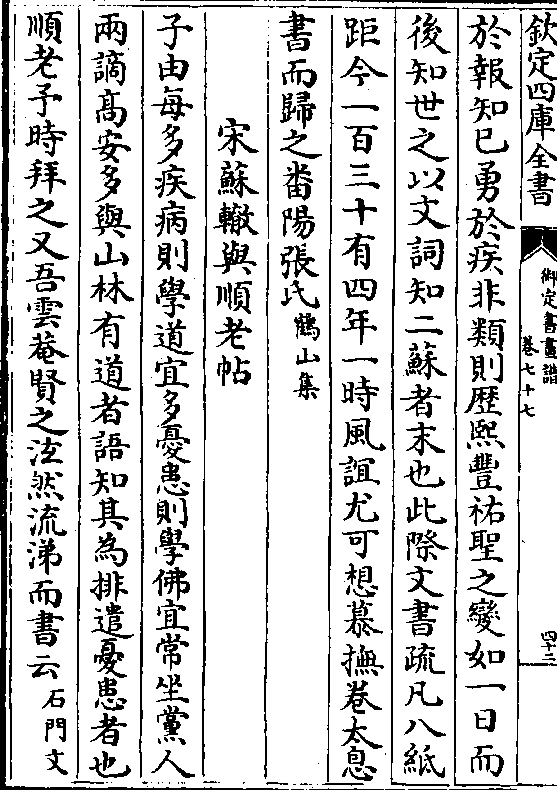 欽定四庫全書
御定書畫譜
卷七十七
四十三
於報知已勇於疾非類則歴熙豐祐聖之變如一日而
後知世之以文詞知二蘇者末也此際文書疏凡八紙
距今一百三十有四年一時風誼尤可想慕撫卷太息
書而歸之畨陽張氏鶴山集
宋蘇轍與順老帖
子由每多疾病則學道宜多憂患則學佛宜常坐黨人
兩謫髙安多與山林有道者語知其為排遣憂患者也
順老予時拜之又吾雲菴賢之泫然流涕而書云石門文